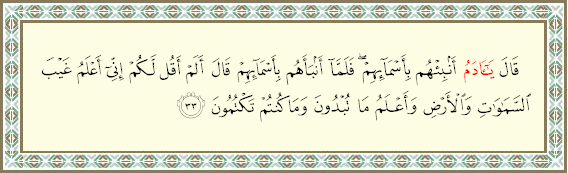 قَالَ يَـٰٓـَٔادَمُ أَنۢبِئْهُم بِأَسْمَآئِهِمْ ۖ فَلَمَّآ أَنۢبَأَهُم بِأَسْمَآئِهِمْ قَالَ أَلَمْ أَقُل لَّكُمْ إِنِّىٓ أَعْلَمُ غَيْبَ
ٱلسَّمَـٰوَٰتِ وَٱلْأَرْضِ وَأَعْلَمُ مَا تُبْدُونَ وَمَا كُنتُمْ تَكْتُمُونَ ٣٣